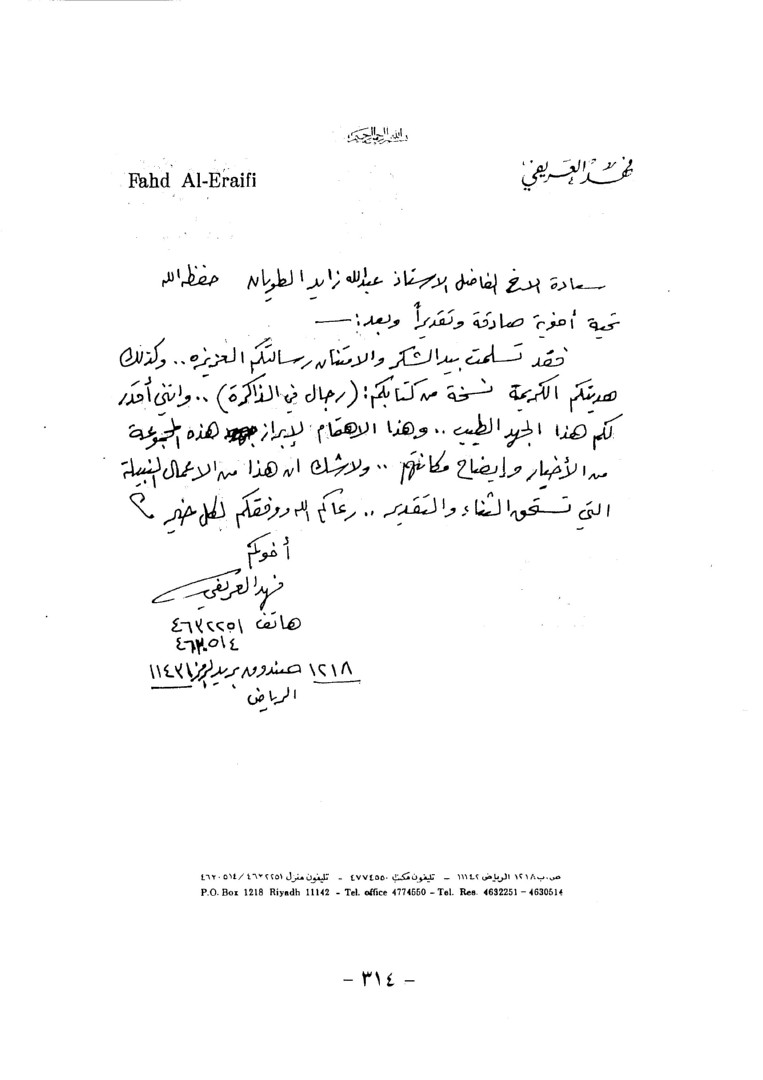 بسم الله الرحمن الرحيم
Fahd Al-Eraifi
فهد العريفي
سعادة الاخ الفاضل الاستاذ عبدالله زايد الطويان حفظه الله
تحية أخوية صادقة وتقديراً وبعد: —
فقد تسلمت بيد الشكر والامتنان رسالتكم العزيزه .. وكذلك
هديتكم الكريمة نسخة من كتابكم: (رجال في الذاكرة) .. وانني أقدر
لكم هذا الجهد الطيب .. وهذا الاهتمام لإبراز هذه المجموعة
من الأخيار وإيضاح مكانتهم .. ولاشك ان هذا من الاعمال النبيلة
التي تستحق الثناء والتقدير .. رعاكم الله ووفقكم لكل خير
أخوكم
فهد العريفي
هاتف ٤٦٣٢٢٥١
٤٦٣٠٥١٤
١٢١٨ صندوق بريد الرمز ١١٤٣١
الرياض
ص.ب ١٢١٨ الرياض ١١١٤٢ – تليفون مكتب ٤٧٧٤٥٥٠ – تليفون منزل ٤٦٣٢٢٥١ / ٤٦٣٠٥١٤
P.O. Box 1218 Riyadh 11142 – Tel. office 4774550 – Tel. Res. 4632251 – 4630514
– ٣١٤ –